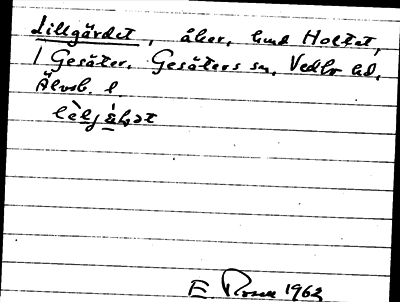 Lillgärdet, åker, hmd Holtet,
1 Gesäter, Gesäters sn, Vedbo hd,
Älvsb. l
E Rosell 1962